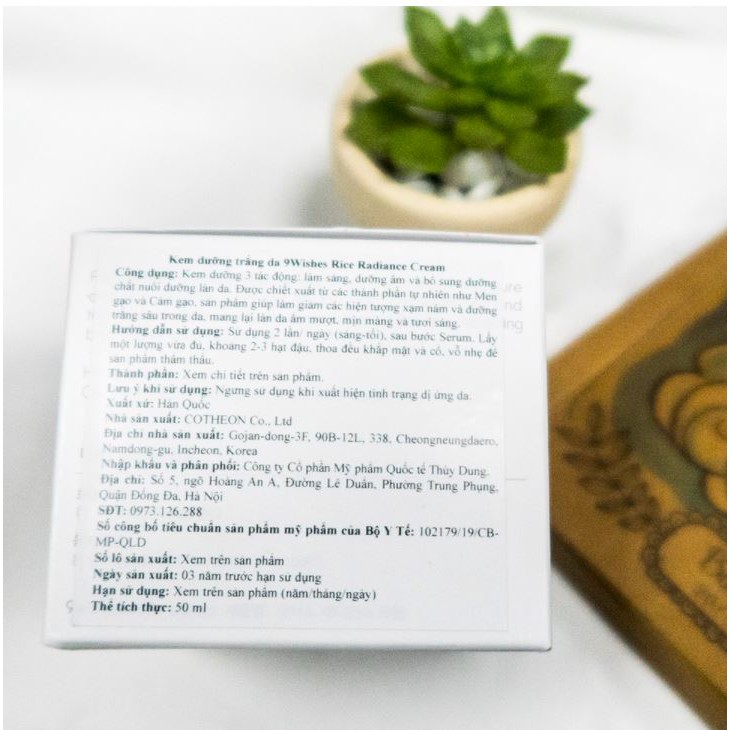 Kem dưỡng trắng da 9Wishes Rice Radiance Cream
Công dụng: Kem dưỡng 3 tác động: làm sáng, dưỡng ẩm và bổ sung dưỡng
chất nuôi dưỡng làn da. Được chiết xuất từ các thành phần tự nhiên như Men
gạo và Cám gạo, sản phẩm giúp làm giảm các hiện tượng xạm nám và dưỡng
trắng sâu trong da, mang lại làn da ẩm mượt, mịn màng và tươi sáng.
Hướng dẫn sử dụng: Sử dụng 2 lần/ ngày (sáng-tối), sau bước Serum. Lấy
một lượng vừa đủ, khoảng 2-3 hạt đậu, thoa đều khắp mặt và cổ, vỗ nhẹ để
sản phẩm thẩm thấu.
Thành phần: Xem chi tiết trên sản phẩm.
Lưu ý khi sử dụng: Ngưng sử dụng khi xuất hiện tình trạng dị ứng da.
Xuất xứ: Hàn Quốc
Nhà sản xuất: COTHEON Co., Ltd
Địa chỉ nhà sản xuất: Gojan-dong-3F, 90B-12L, 338, Cheongneungdaero,
Namdong-gu, Incheon, Korea
Nhập khẩu và phân phối: Công ty Cổ phần Mỹ phẩm Quốc tế Thùy Dung.
Địa chỉ: Số 5, ngõ Hoàng An A, Đường Lê Duẩn, Phường Trung Phụng,
Quận Đống Đa, Hà Nội
SĐT: 0973.126.288
Số công bố tiêu chuẩn sản phẩm mỹ phẩm của Bộ Y Tế: 102179/19/CB-
MP-QLD
Số lô sản xuất: Xem trên sản phẩm
Ngày sản xuất: 03 năm trước hạn sử dụng
Hạn sử dụng: Xem trên sản phẩm (năm/tháng/ngày)
Thể tích thực: 50 ml